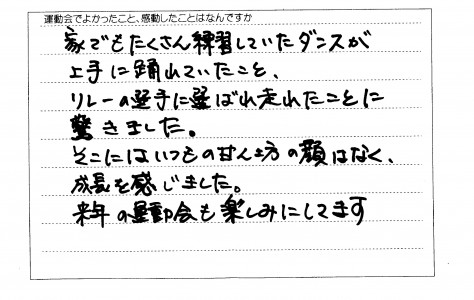 運動会でよかったこと、感動したことはなんですか
家でもたくさん練習していたダンスが
上手に踊れていたこと、
リレーの選手に選ばれ走れたことに
驚きました。
そこにはいつもの甘えん坊の顔はなく、
成長を感じました。
来年の運動会も楽しみにしてます